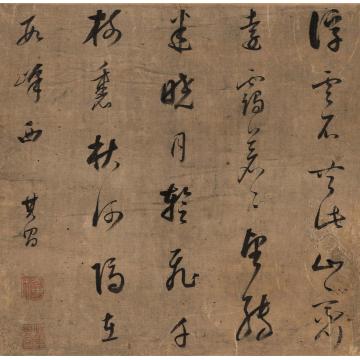 浮雲不共此山齊
靄蒼〻望轉
迷曉月暫飛千
樹裏秋河隔在
數峰西 其昌